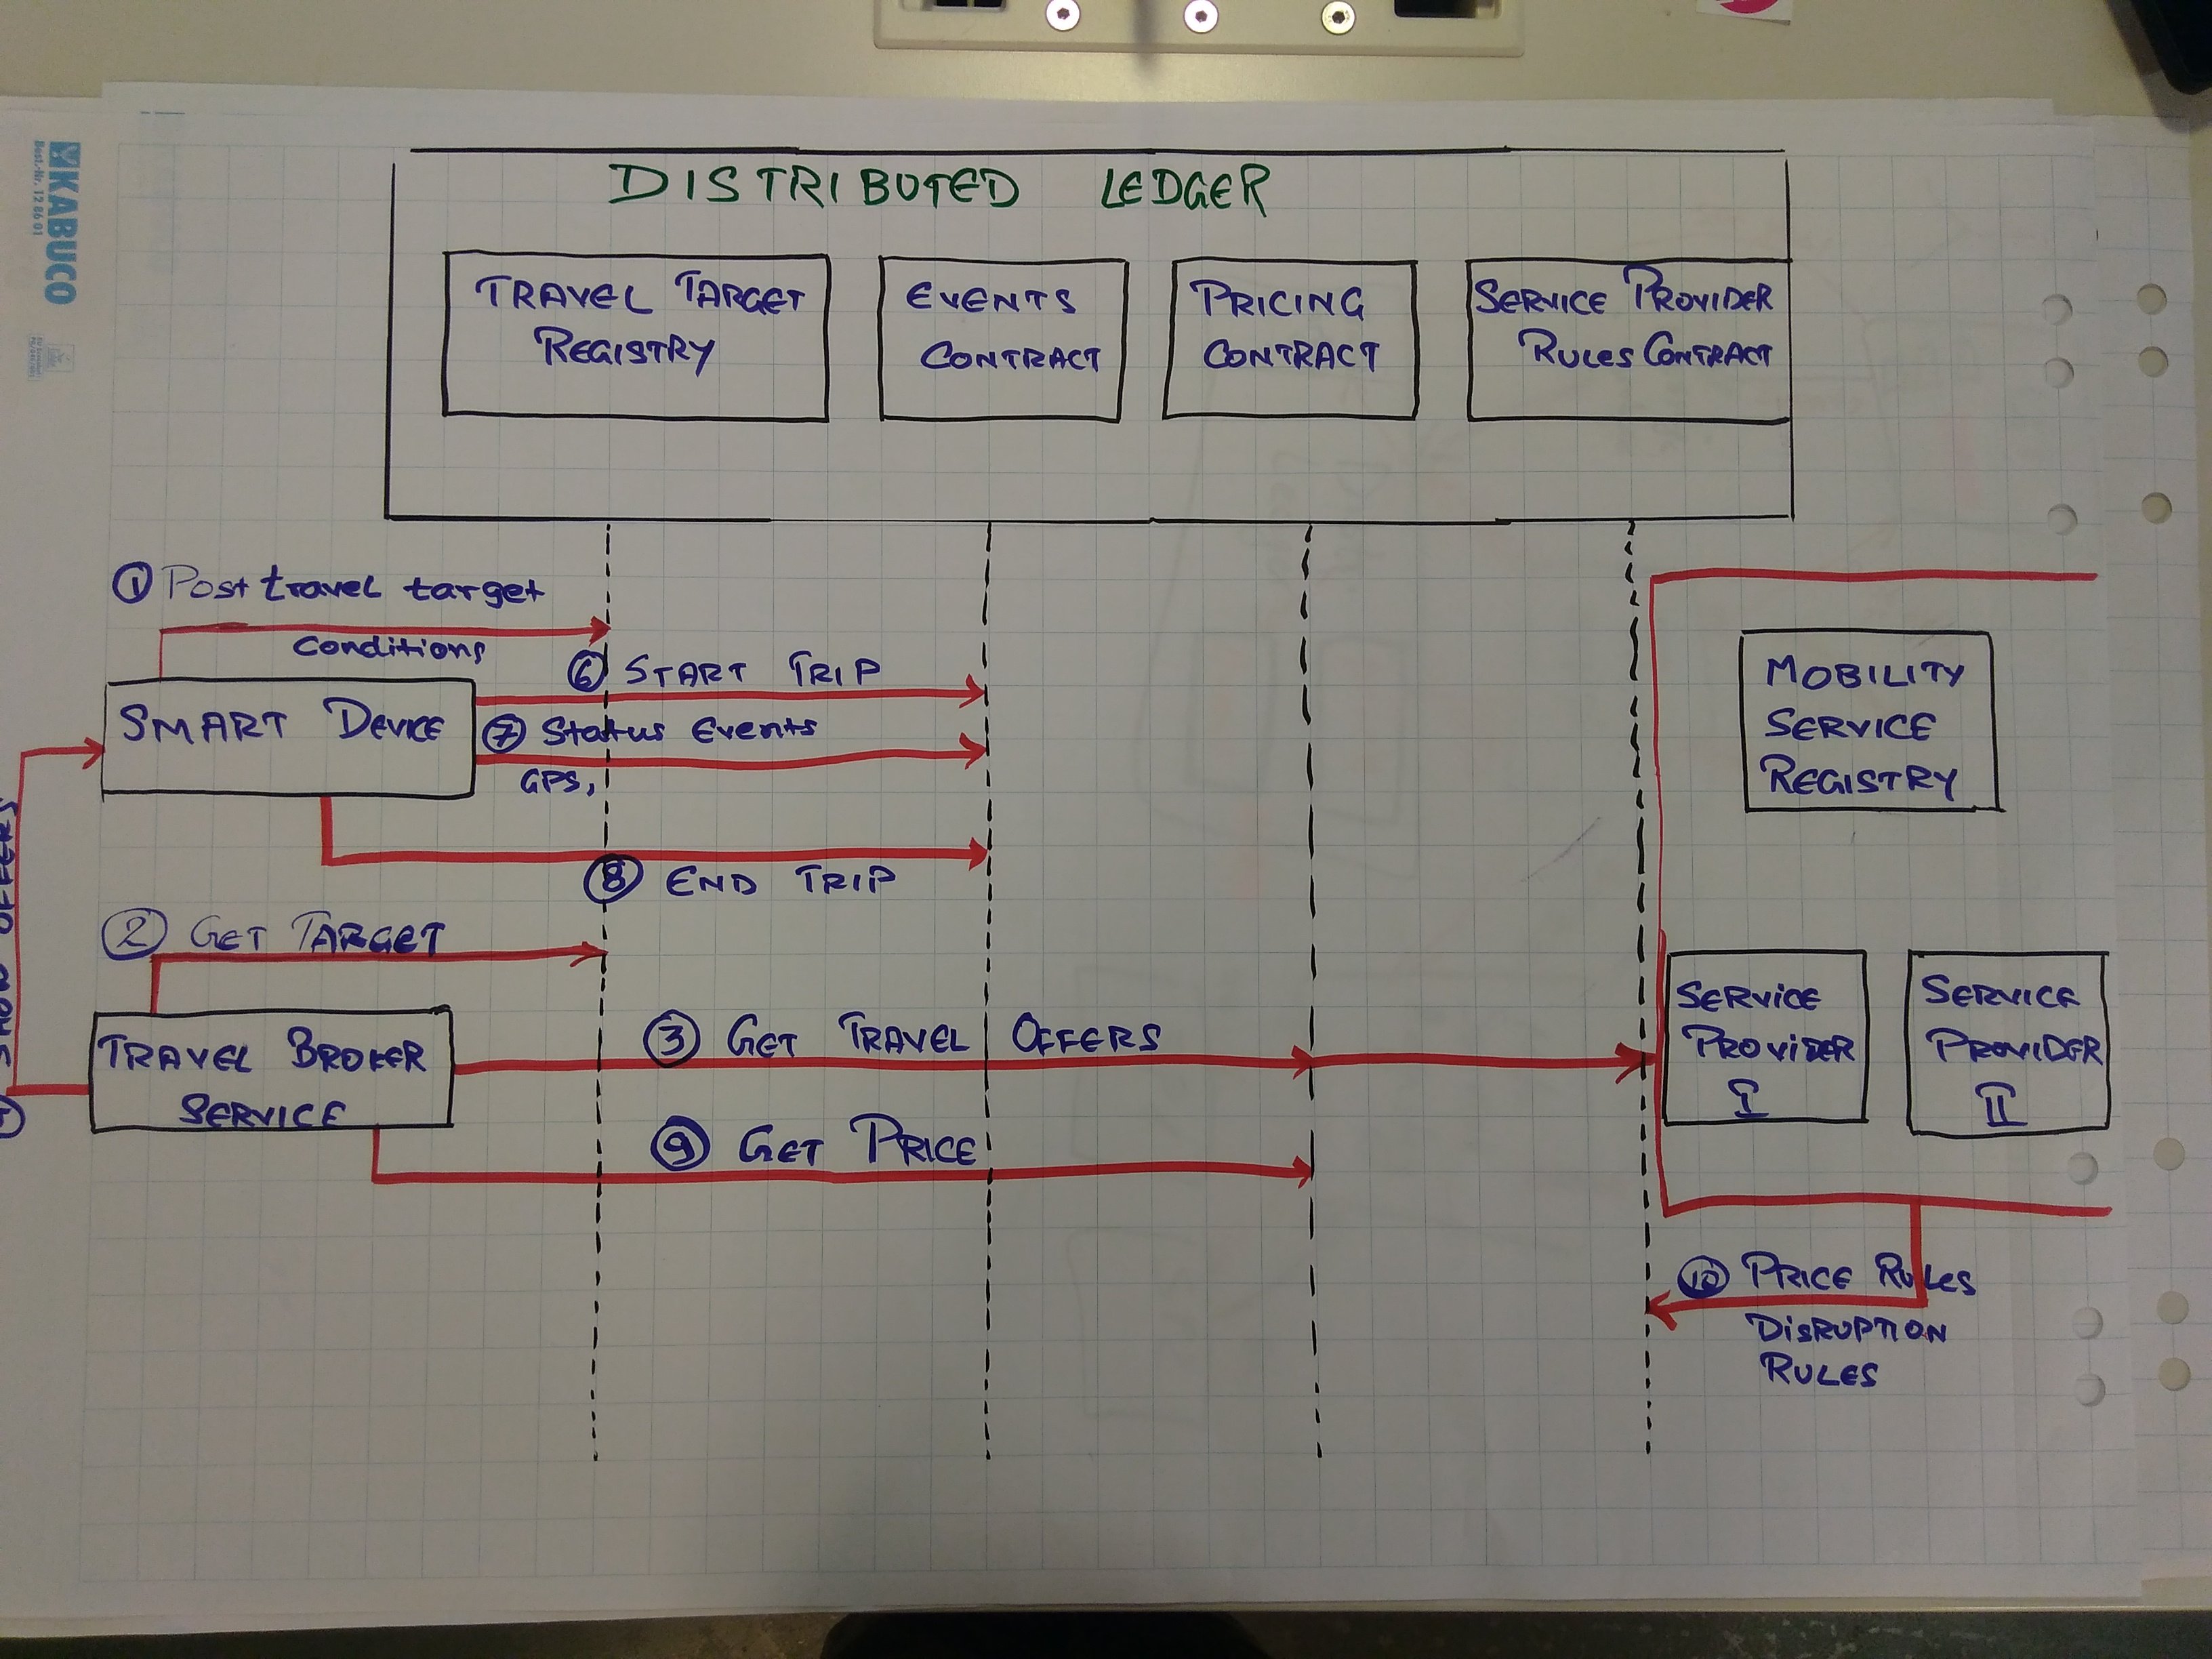 KABUCO
Best.-Nr. 12 86 01
DISTRIBUTED LEDGER
TRAVEL TARGET
REGISTRY
EVENTS
CONTRACT
PRICING
CONTRACT
SERVICE PROVIDER
RULES CONTRACT
① Post travel target
Conditions
⑥ START TRIP
SMART DEVICE
⑦ Status Events
GPS,
⑧ END TRIP
MOBILITY
SERVICE
REGISTRY
OFFERS
② GET TARGET
③ GET TRAVEL OFFERS
TRAVEL BROKER
SERVICE
⑨ GET PRICE
SERViCE
PROViDER
I
SERVICE
PROVIDER
II
⑩ PRICE RULES
DISRUPTION
RULES